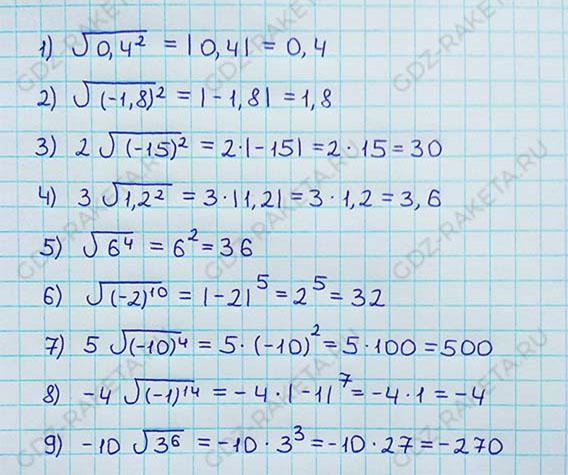 1) √0,4² = |0,4| = 0,4
2) √(-1,8)² = |-1,8| = 1,8
3) 2 √(-15)² = 2·|-15| = 2·15 = 30
4) 3 √1,2² = 3·|1,2| = 3·1,2 = 3,6
5) √6⁴ = 6² = 36
6) √(-2)¹⁰ = |-2|⁵ = 2⁵ = 32
7) 5 √(-10)⁴ = 5·(-10)² = 5·100 = 500
8) -4 √(-1)¹⁴ = -4·|-1|⁷ = -4·1 = -4
9) -10 √3⁶ = -10·3³ = -10·27 = -270
GDZ-RAKETA.RU